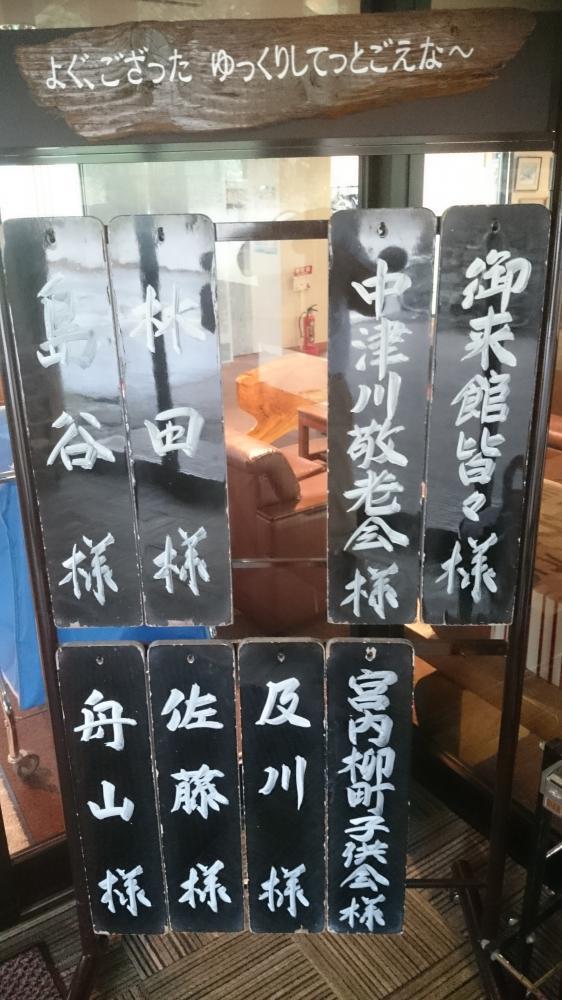 よぐ、ござった ゆっくりしてっとごえな～
御来館皆々様
中津川敬老会様
秋田様
島谷様
宮内柳町子供会様
及川様
佐藤様
舟山様